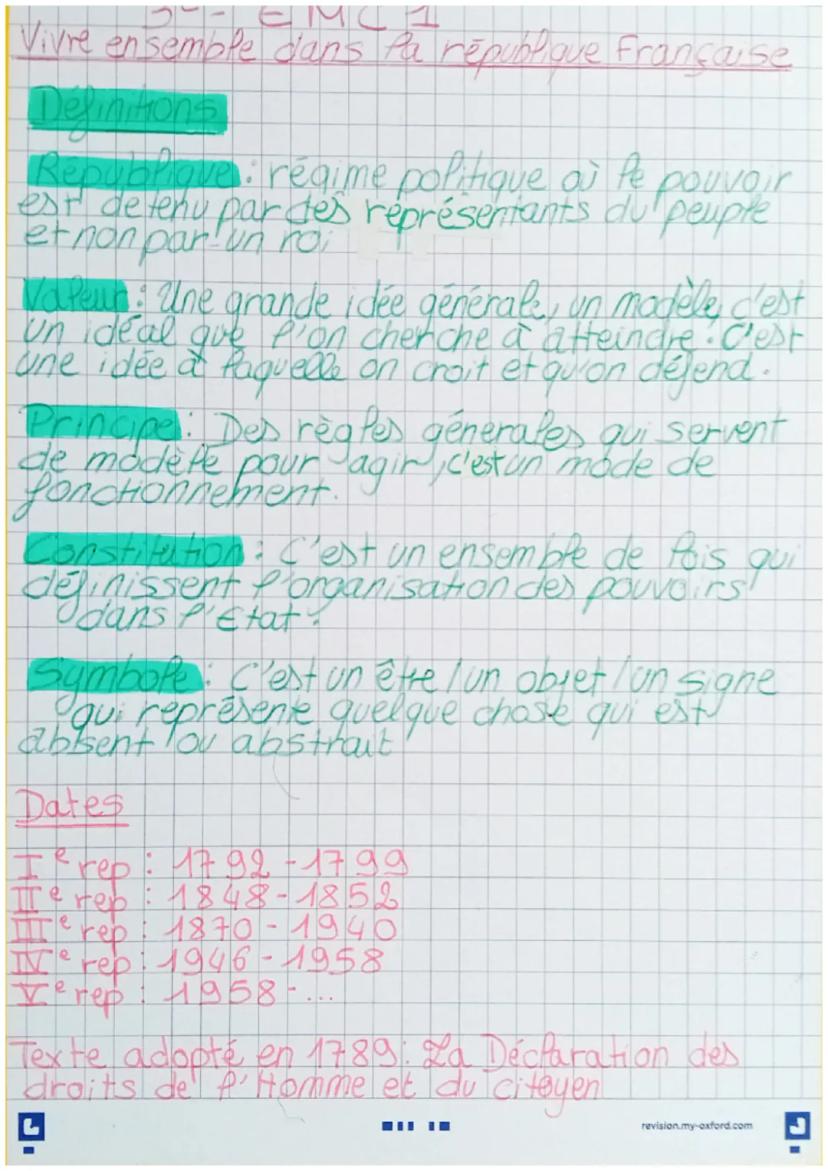 EMC 1
Vivre ensemble dans la république Française
Définitions
République : régime politique où le pouvoir
est detenu par des réprésentants du peuple
et non par un roi
Valeur : Une grande idée générale, un modèle, c'est
un idéal que l'on cherche à atteindre. C'est
une idée à laquelle on croit et qu'on défend.
Principe : Des règles génerales qui servent
de modèle pour agir, c'est un mode de
fonctionnement.
Constitution : C'est un ensemble de lois qui
définissent l'organisation des pouvoirs
dans l'Etat.
Symbole : C'est un être / un objet / un signe
qui représente quelque chose qui est
absent / ou abstrait
Dates
Iᵉ rep : 1792 - 1799
IIᵉ rep : 1848 - 1852
IIIᵉ rep : 1870 - 1940
IVᵉ rep : 1946 - 1958
Vᵉ rep : 1958 - ...
Texte adopté en 1789 : La Déclaration des
droits de l'Homme et du citoyen
revision.my-oxford.com